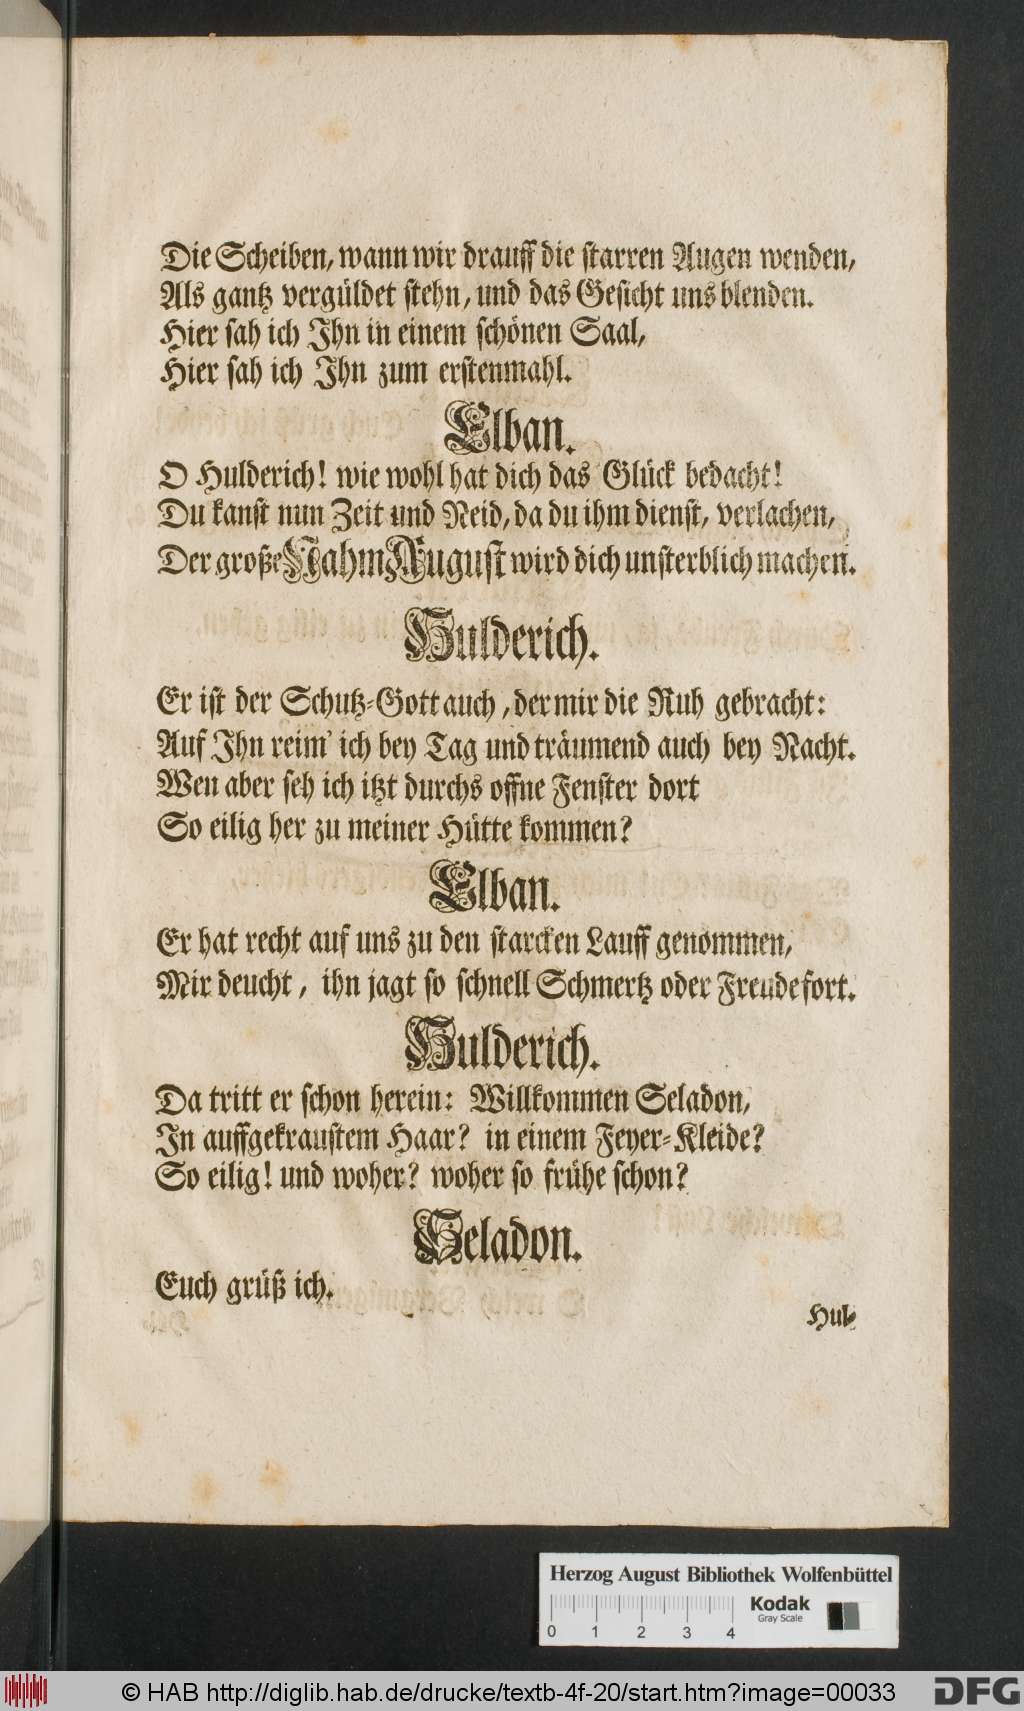 Die Scheiben, wann wir drauff die starren Augen wenden,
Als gantz vergüldet stehn, und das Gesicht uns blenden.
Hier sah ich Ihn in einem schönen Saal,
Hier sah ich Ihn zum erstenmahl.
Elban.
O Hulderich! wie wohl hat dich das Glück bedacht!
Du kanst nun Zeit und Neid, da du ihm dienst, verlachen,
Der große Nahm August wird dich unsterblich machen.
Hulderich.
Er ist der Schutz-Gott auch, der mir die Ruh gebracht:
Auf Ihn reim' ich bey Tag und träumend auch bey Nacht.
Wen aber seh ich itzt durchs offne Fenster dort
So eilig her zu meiner Hütte kommen?
Elban.
Er hat recht auf uns zu den starcken Lauff genommen,
Mir deucht, ihn jagt so schnell Schmertz oder Freude fort.
Hulderich.
Da tritt er schon herein: Willkommen Seladon,
In auffgekraustem Haar? in einem Feyer-Kleide?
So eilig! und woher? woher so frühe schon?
Seladon.
Euch grüß ich.
Hul-
Herzog August Bibliothek Wolfenbüttel
Kodak
Gray Scale
0 1 2 3 4
© HAB http://diglib.hab.de/drucke/textb-4f-20/start.htm?image=00033
DFG